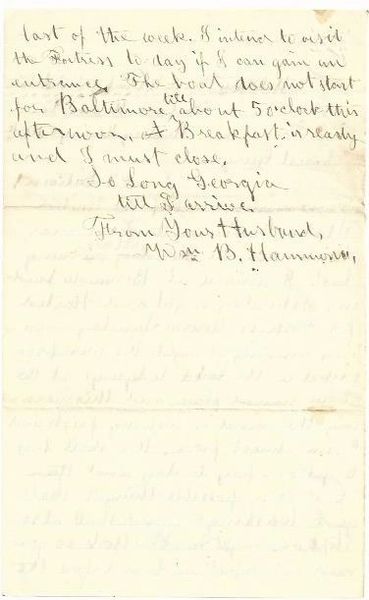 last of the week. I intend to visit
the Fortress to day if I can gain an
entrance. The boat does not start
for Baltimore till about 5 o'clock this
afternoon. A Breakfast is ready
and I must close.
So Long Georgia
till I arrive.
From Your Husband,
Wm B. Hammond,